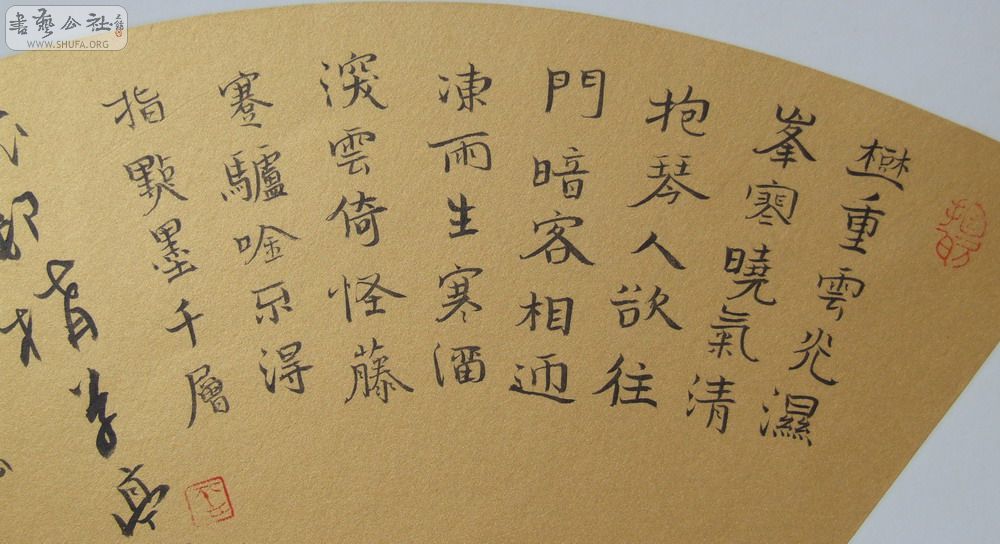 書藝公社
WWW.SHUFA.ORG
重雲光濕
峯寒曉氣清
抱琴人欲往
門暗客相迎
凍雨生寒溜
深雲倚怪藤
蹇驢唫不得
指點墨千層